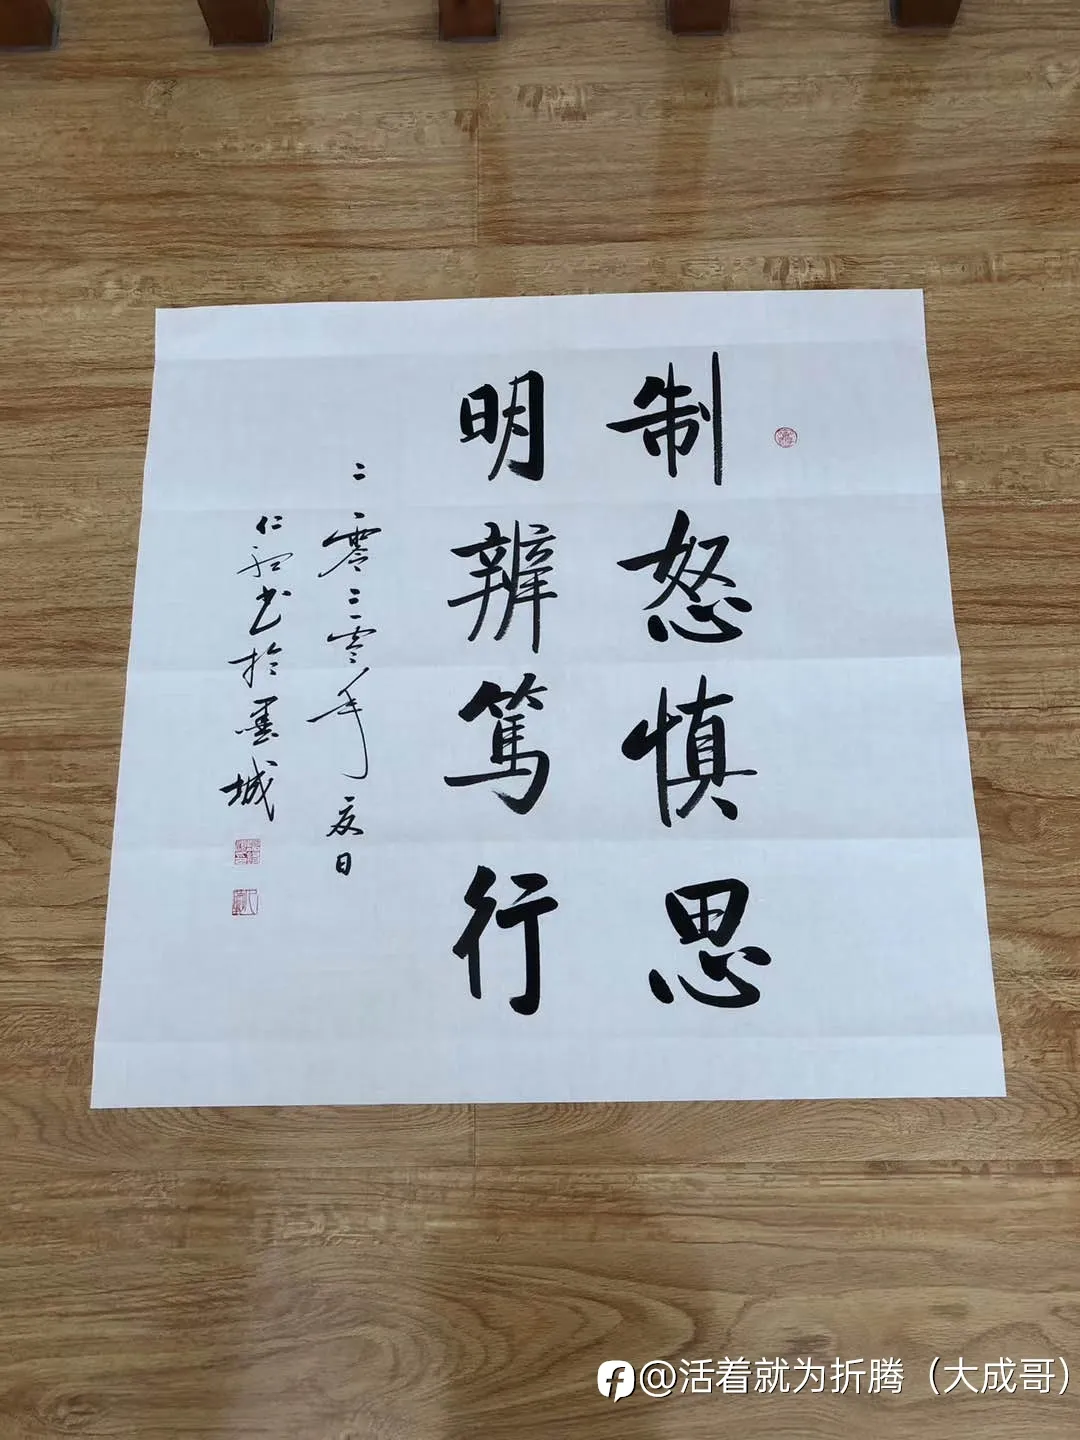 制怒慎思
明辨篤行
二零二零年夏日
仁和书於墨城
@活着就为折腾（大成哥）